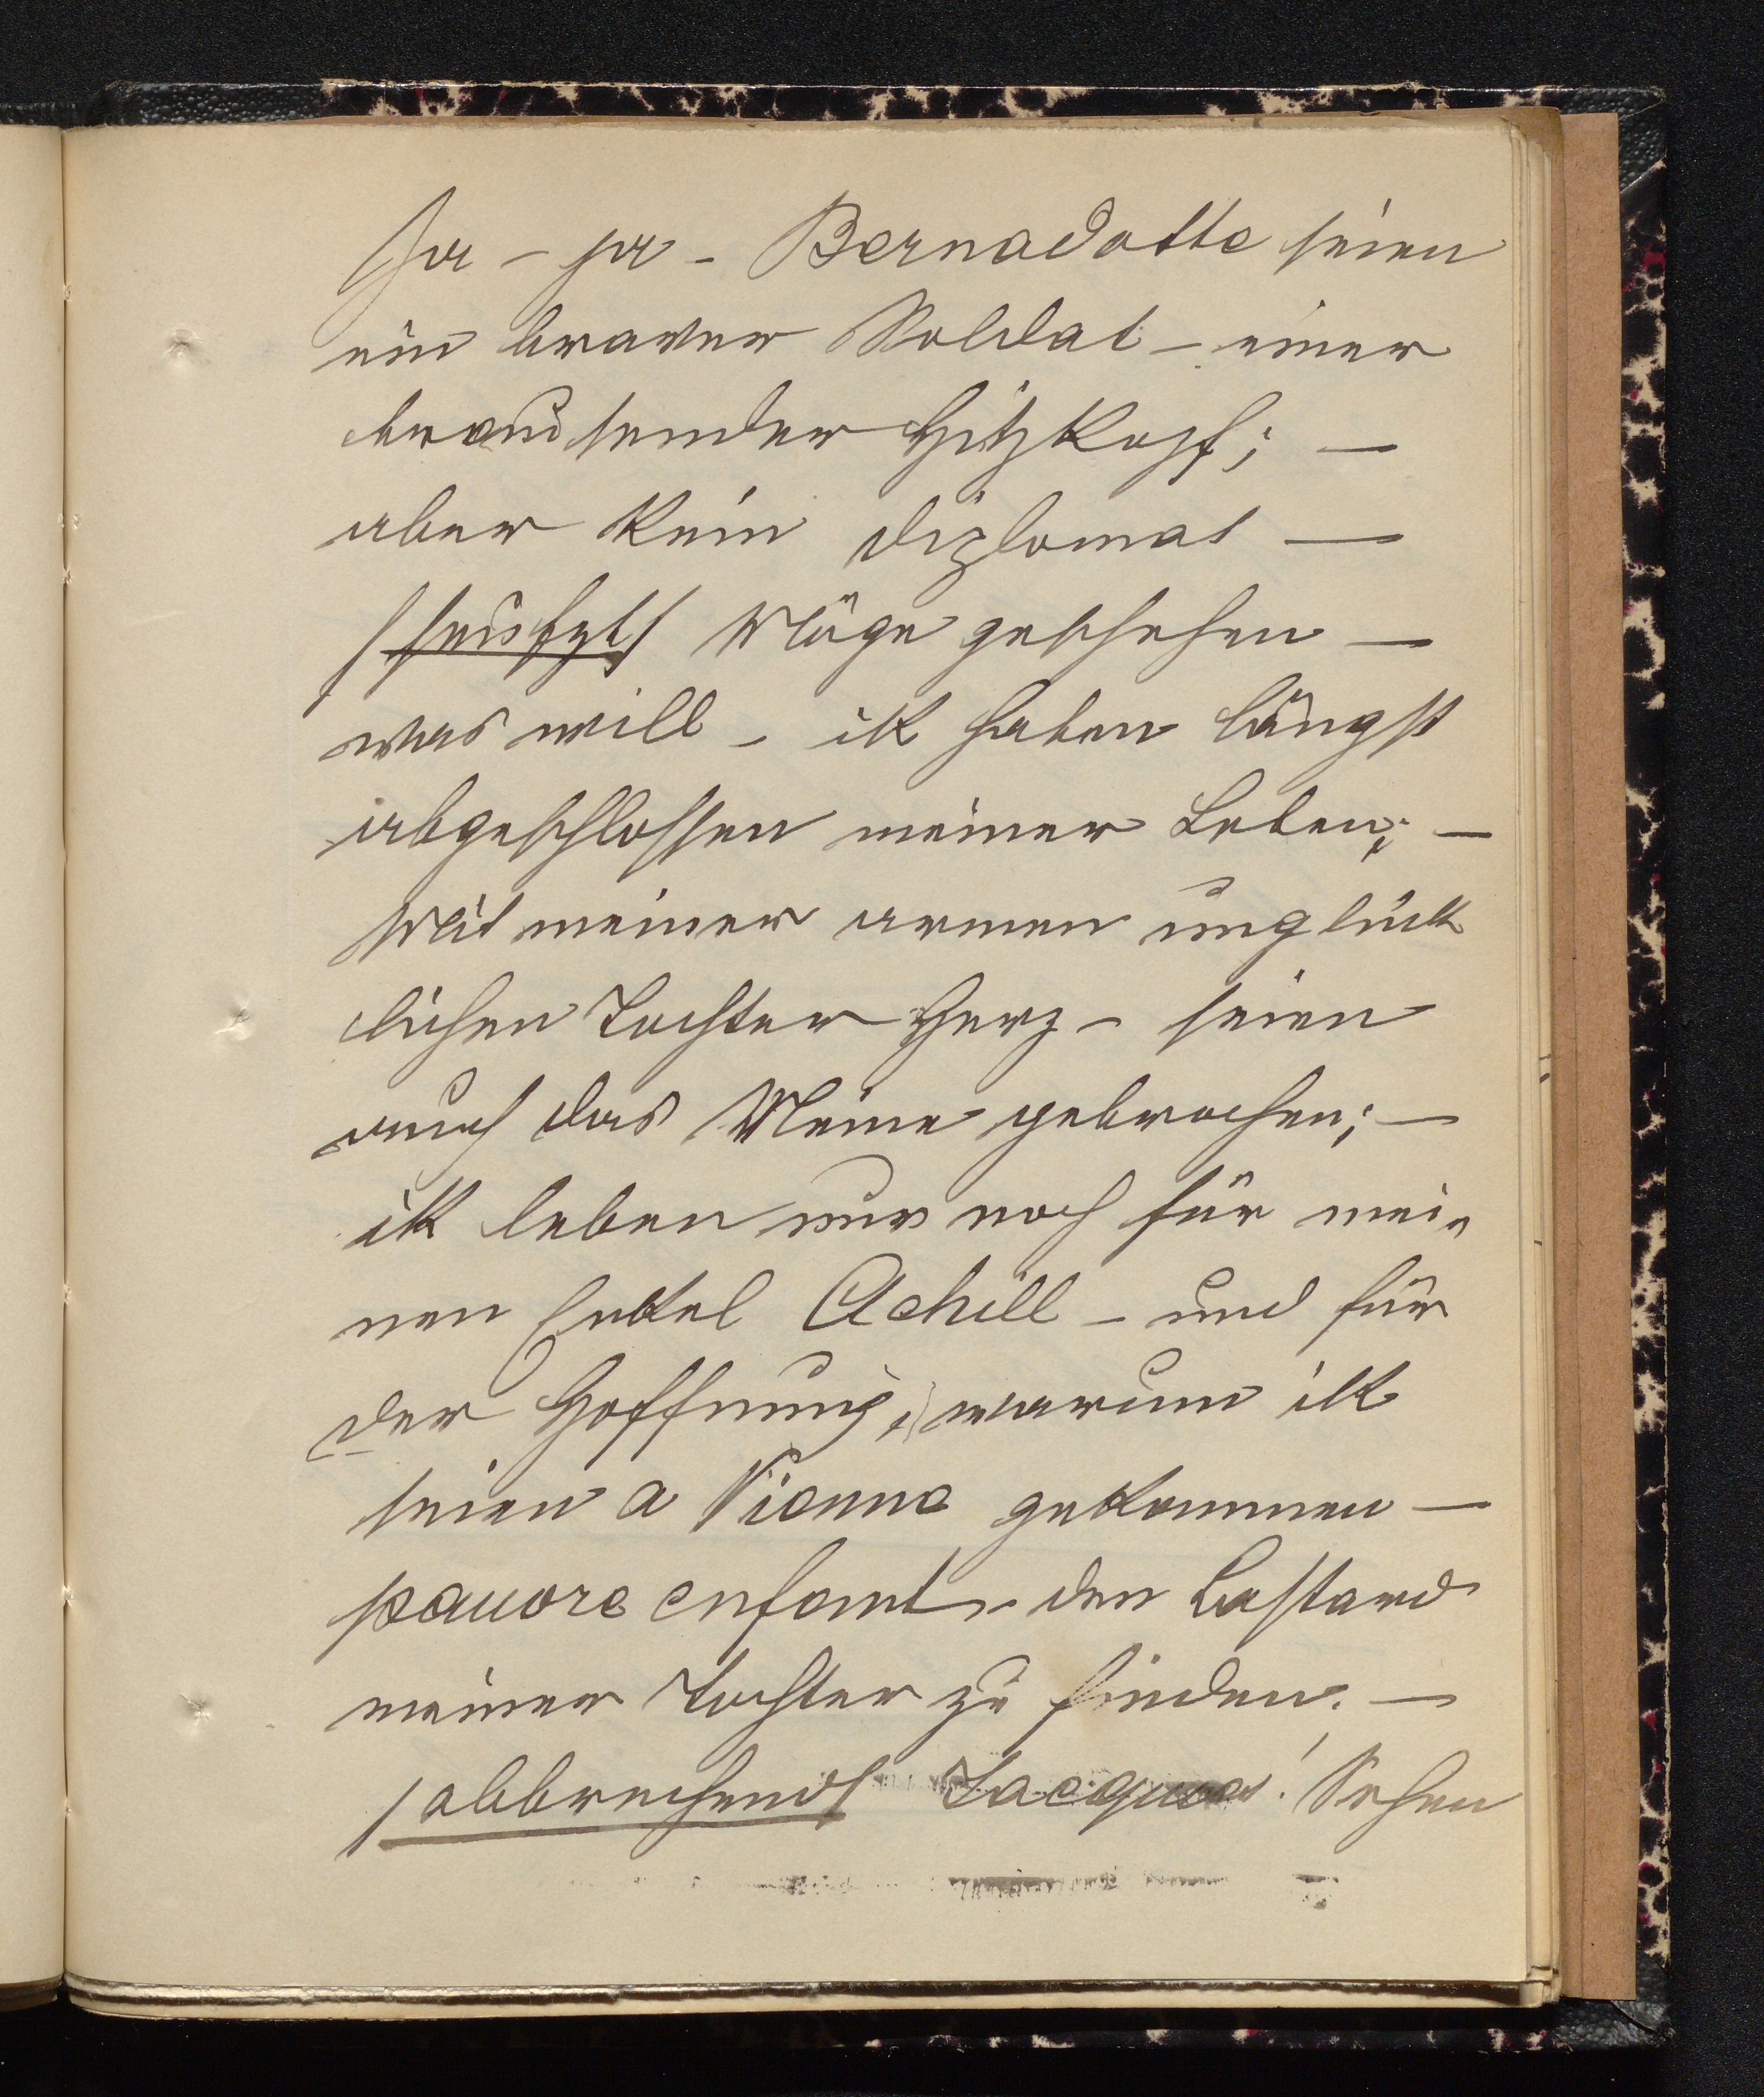 Ja – ja – Bernadotte seien
ein braver Soldat – einer
brausender Hitzkopf; –
aber kein Diplomat –
/seufzt/ Möge geschehen –
was will – ik haben längst
abgeschlossen meiner Leben; –
Mit meiner armen unglück
lichen Tochter Herz – seien
auch das Meine gebrochen; –
ik leben nur noch für mei„
nen Enkel Achill – und für
der Hoffnung, warum ik
seien a Vienne gekommen –
pauvre enfant – den Bastard
meiner Tochter zu finden. –
/abbrechend/ Jacques! Sehen